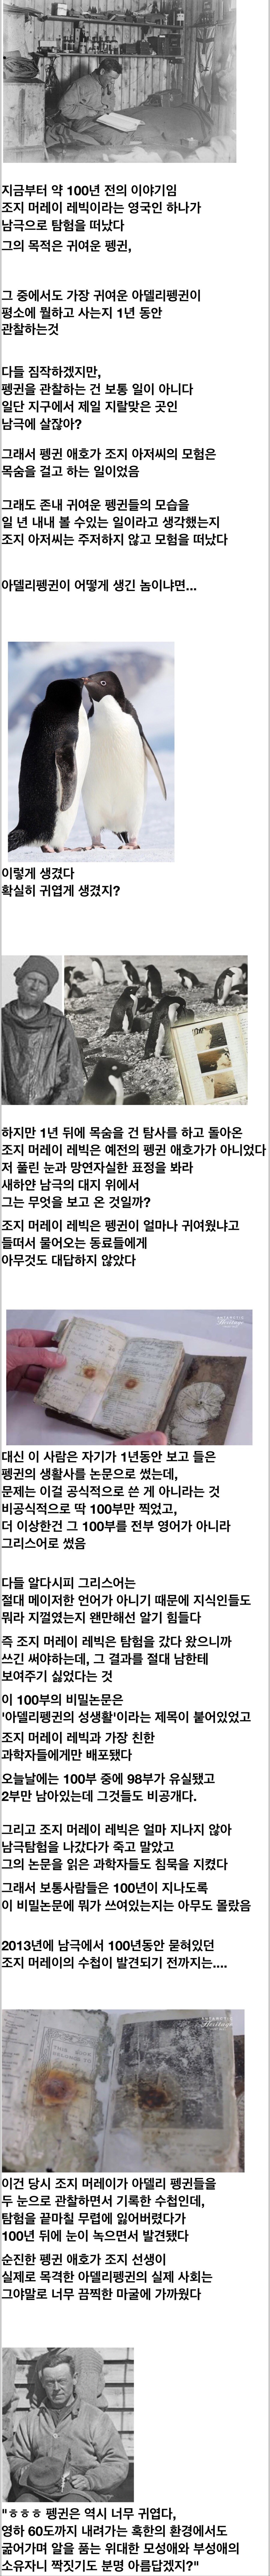 지금부터 약 100년 전의 이야기임
조지 머레이 레빅이라는 영국인 하나가
남극으로 탐험을 떠났다
그의 목적은 귀여운 펭귄,
그 중에서도 가장 귀여운 아델리펭귄이
평소에 뭘하고 사는지 1년 동안
관찰하는것
다들 짐작하겠지만,
펭귄을 관찰하는 건 보통 일이 아니다
일단 지구에서 제일 지랄맞은 곳인
남극에 살잖아?
그래서 펭귄 애호가 조지 아저씨의 모험은
목숨을 걸고 하는 일이었음
그래도 존내 귀여운 펭귄들의 모습을
일 년 내내 볼 수있는 일이라고 생각했는지
조지 아저씨는 주저하지 않고 모험을 떠났다
아델리펭귄이 어떻게 생긴 놈이냐면...
이렇게 생겼다
확실히 귀엽게 생겼지?
하지만 1년 뒤에 목숨을 건 탐사를 하고 돌아온
조지 머레이 레빅은 예전의 펭귄 애호가가 아니었다
저 풀린 눈과 망연자실한 표정을 봐라
새하얀 남극의 대지 위에서
그는 무엇을 보고 온 것일까?
조지 머레이 레빅은 펭귄이 얼마나 귀여웠냐고
들떠서 물어오는 동료들에게
아무것도 대답하지 않았다
ANTARCTIC
Heritage
대신 이 사람은 자기가 1년동안 보고 들은
펭귄의 생활사를 논문으로 썼는데,
문제는 이걸 공식적으로 쓴 게 아니라는 것
비공식적으로 딱 100부만 찍었고,
더 이상한건 그 100부를 전부 영어가 아니라
그리스어로 썼음
다들 알다시피 그리스어는
절대 메이저한 언어가 아니기 때문에 지식인들도
뭐라 지껄였는지 왠만해선 알기 힘들다
즉 조지 머레이 레빅은 탐험을 갔다 왔으니까
쓰긴 써야하는데, 그 결과를 절대 남한테
보여주기 싫었다는 것
이 100부의 비밀논문은
'아델리펭귄의 성생활'이라는 제목이 붙어있었고
조지 머레이 레빅과 가장 친한
과학자들에게만 배포됐다
오늘날에는 100부 중에 98부가 유실됐고
2부만 남아있는데 그것들도 비공개다.
그리고 조지 머레이 레빅은 얼마 지나지 않아
남극탐험을 나갔다가 죽고 말았고
그의 논문을 읽은 과학자들도 침묵을 지켰다
그래서 보통사람들은 100년이 지나도록
이 비밀논문에 뭐가 쓰여있는지는 아무도 몰랐음
2013년에 남극에서 100년동안 묻혀있던
조지 머레이의 수첩이 발견되기 전까지는....
ANTARCTIC
Heritage
이건 당시 조지 머레이가 아델리 펭귄들을
두 눈으로 관찰하면서 기록한 수첩인데,
탐험을 끝마칠 무렵에 잃어버렸다가
100년 뒤에 눈이 녹으면서 발견됐다
순진한 펭귄 애호가 조지 선생이
실제로 목격한 아델리펭귄의 실제 사회는
그야말로 너무 끔찍한 마굴에 가까웠다
"ㅎㅎㅎ 펭귄은 역시 너무 귀엽다,
영하 60도까지 내려가는 혹한의 환경에서도
굶어가며 알을 품는 위대한 모성애와 부성애의
소유자니 짝짓기도 분명 아름답겠지?"